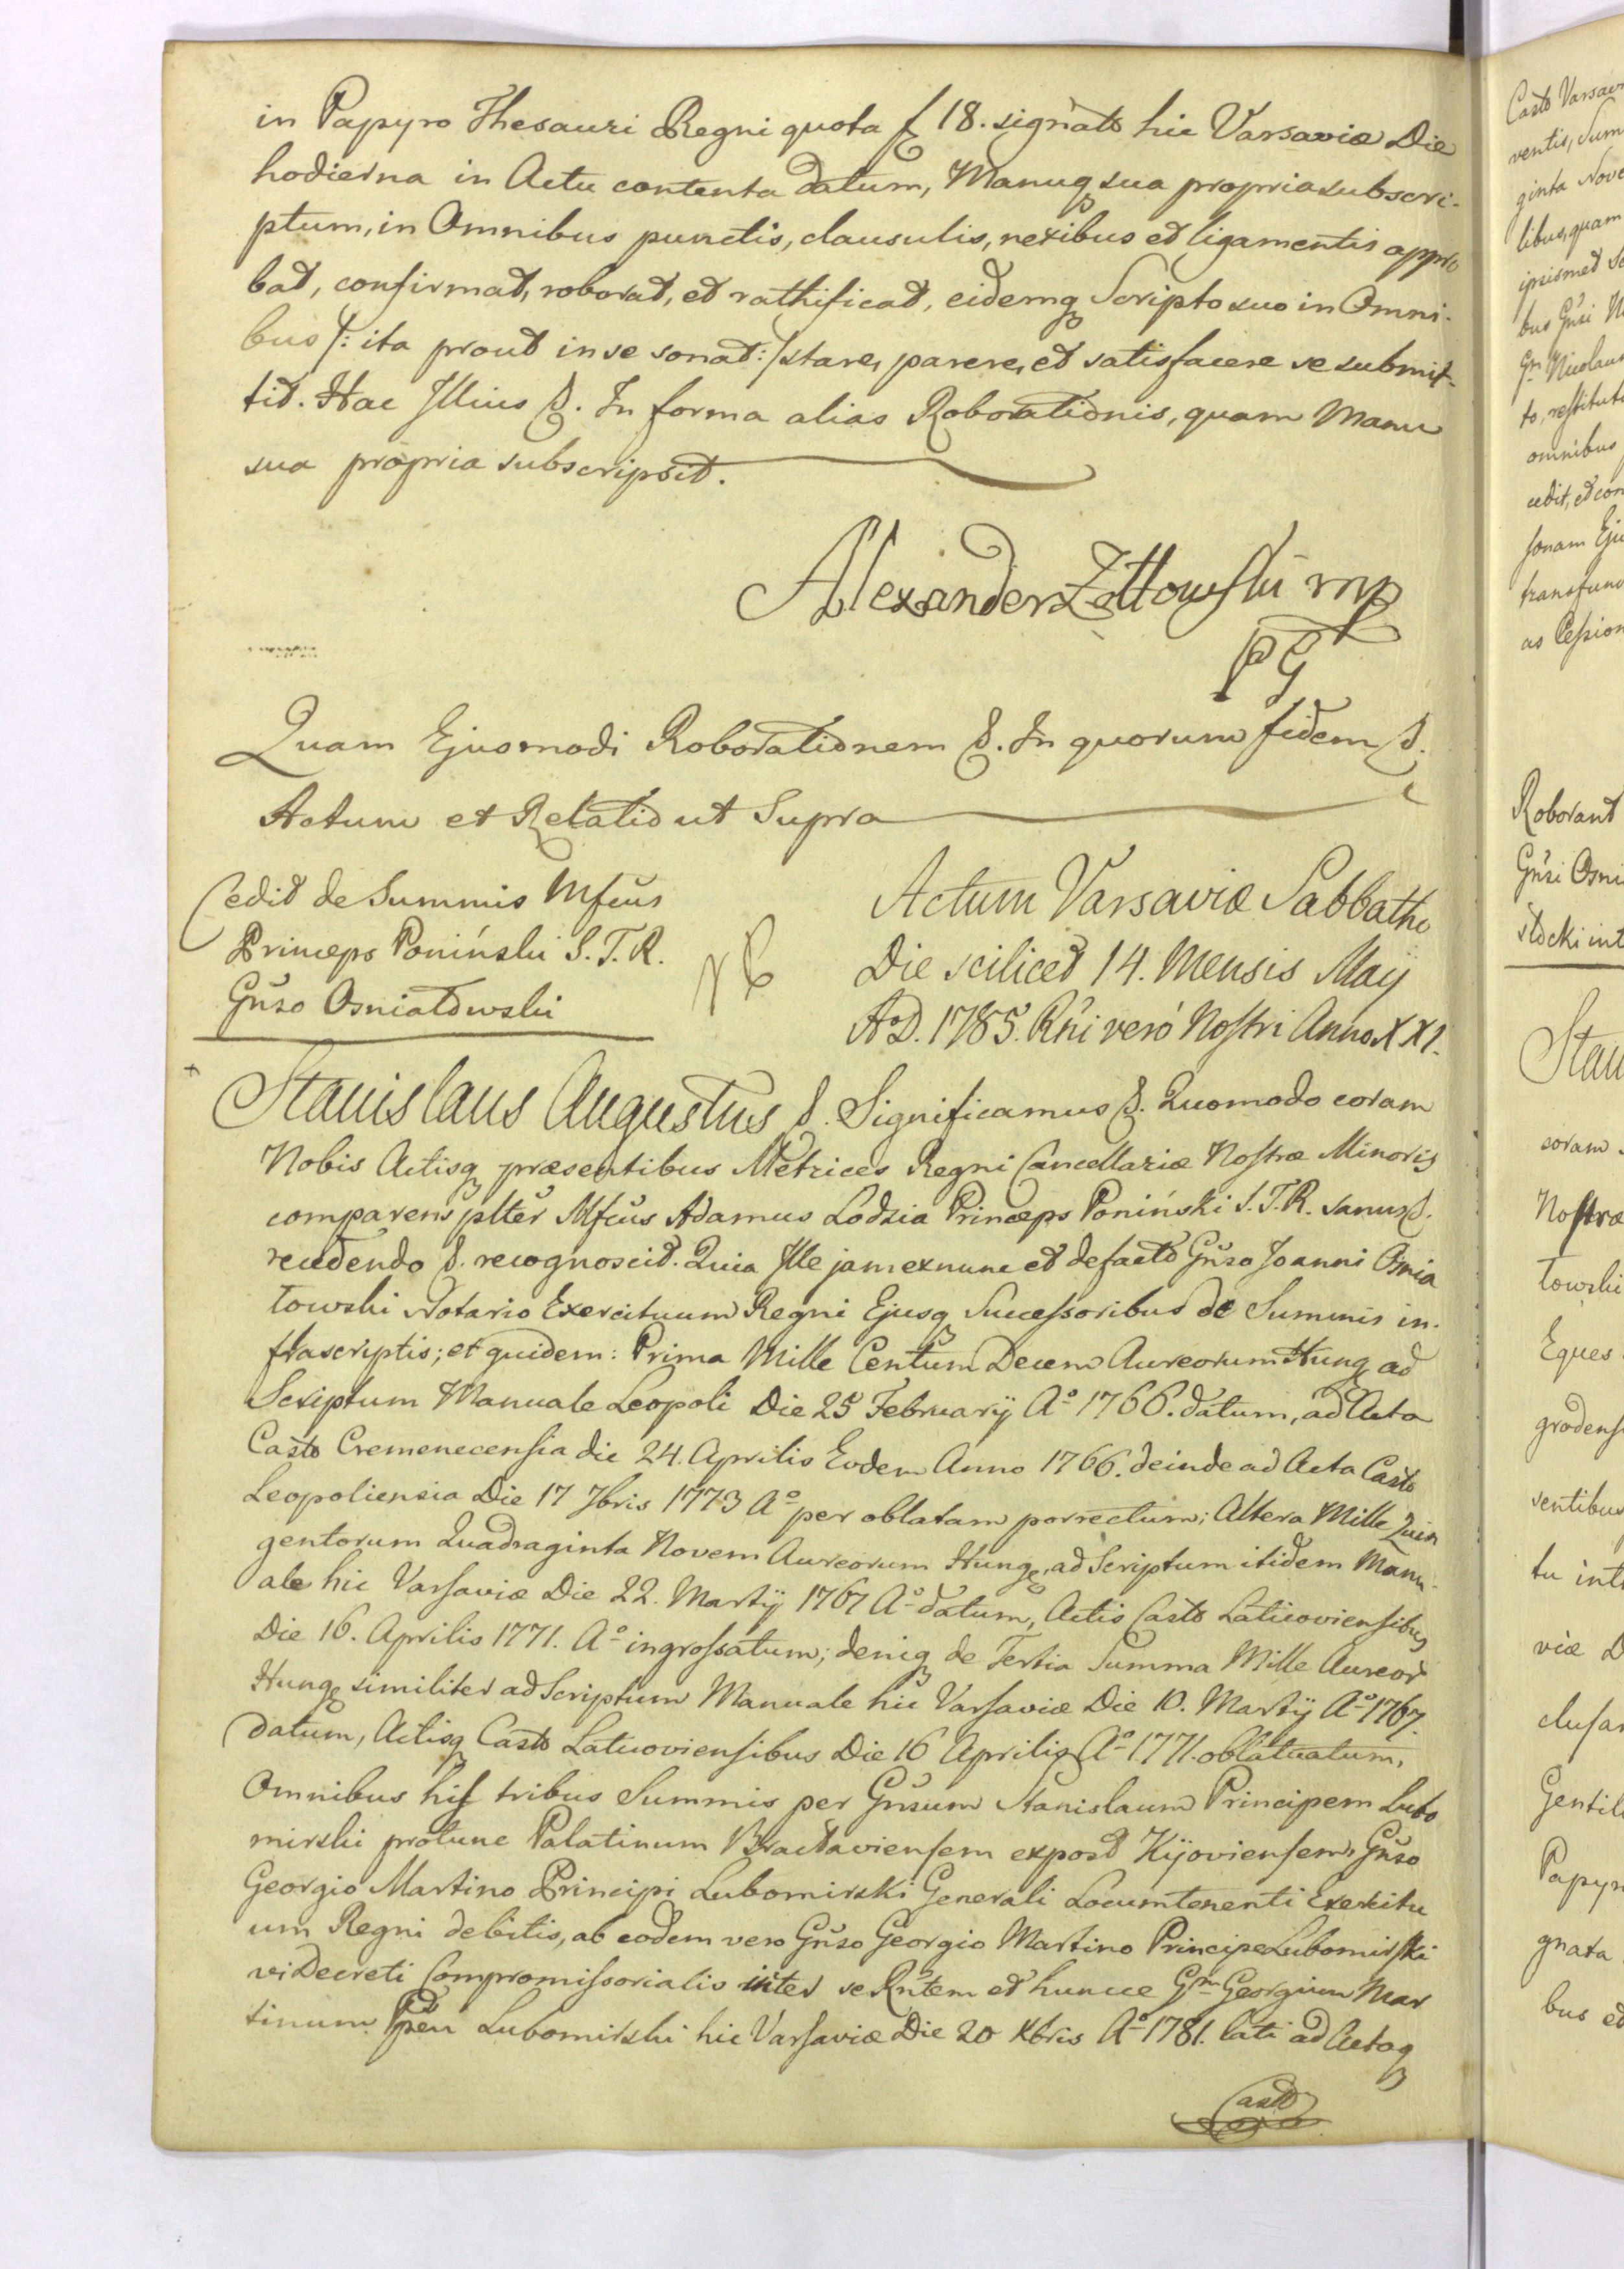 in Papyro Thesauri Regni quota f 18. signato hic Varsaviæ Die
hodierna in Actu contenta datum, Manuq sua propria subscri-
ptum, in Omnibus punctis, clausulis, nexibus et ligamentis appro
bat, confirmat, roborat, et rathificat, eidemq Scripto suo in Omni-
bus /: ita prout in se sonat :/ stare, parere, et satisfacere se submit-
tit. Hac Illius &. In forma alias Roborationis, quam Manu
sua propria subscripsit.
Alexander Zettowski mp
PG
Quam Ejusmodi Roborationem &. In quorum fidem &.
Actum et Relatio ut Supra
Cedit de Summis Mfcus
Princeps Poniński S. T. R.
Gnso Osniałowski
Actum Varsaviæ Sabbatho
Die scilicet 14. Mensis Maij
A.D. 1785. Rni vero Nostri Anno XXI.
Stanislaus Augustus &. Significamus &. Quomodo coram
Nobis Actisq præsentibus Metrices Regni Cancellariæ Nostræ Minoris
comparens plter Mfcus Adamus Lodzia Princeps Poniński S. T. R. sanus &.
recedendo &. recognoscit. Quia Ille jam ex nunc et de facto Gnso Joanni Osnia
łowski Notario Exercituum Regni Ejusq Successoribus de Summis in-
frascriptis; et quidem: Prima Mille Centum Decem Aureorum Hung ad
Scriptum Manuale Leopoli Die 25 February A° 1766. datum, ad Acta
Castr Cremenecensia die 24. Aprilis Eodem Anno 1766. deinde ad Acta Castr
Leopoliensia Die 17 7bris 1773 A° per oblatam porrectum; Altera Mille Quin
gentorum Quadraginta Novem Aureorum Hung, ad Scriptum itidem Manu-
ale hic Varsaviæ Die 22. Martij 1767 A° datum, Actis Castr Laticoviensibus
Die 16. Aprilis 1771. A° ingrossatum; deniq de Tertia Summa Mille Aureor
Hung similiter ad Scriptum Manuale hic Varsaviæ Die 10. Martij A° 1767.
datum, Actisq Castr Laticoviensibus Die 16 Aprilis A° 1771. oblatuatum,
Omnibus his tribus Summis per Gnsum Stanislaum Principem Lubo
mirski protunc Palatinum Bracłaviensem expost Kijoviensem, Gnso
Georgio Martino Principi Lubomirski Generali Locumtenenti Exercitu
um Regni debitis, ab eodem vero Gnso Georgio Martino Principe Lubomirski
vi Decreti Compromissorialis inter se Rntem et huncce Gm Georgium Mar
tinum Ppem Lubomirski hic Varsaviæ Die 20 Xbris A° 1781. lati ad Actaq
Castr
Castr Varsavi
ventis, Sum
ginta Nove
libus, quam
ipsismet
bus Gnsi
Gm Nicolaus
omnibus
cedit, et con
sonam Eju
transfund
as Cession
Roborant
Gnsi Osni
słocki int
Stan
coram
Nostræ
towski
Eques
grodens
sentibus
tu int
viæ D
clusa
Gentil
Papyr
gnata
bus et